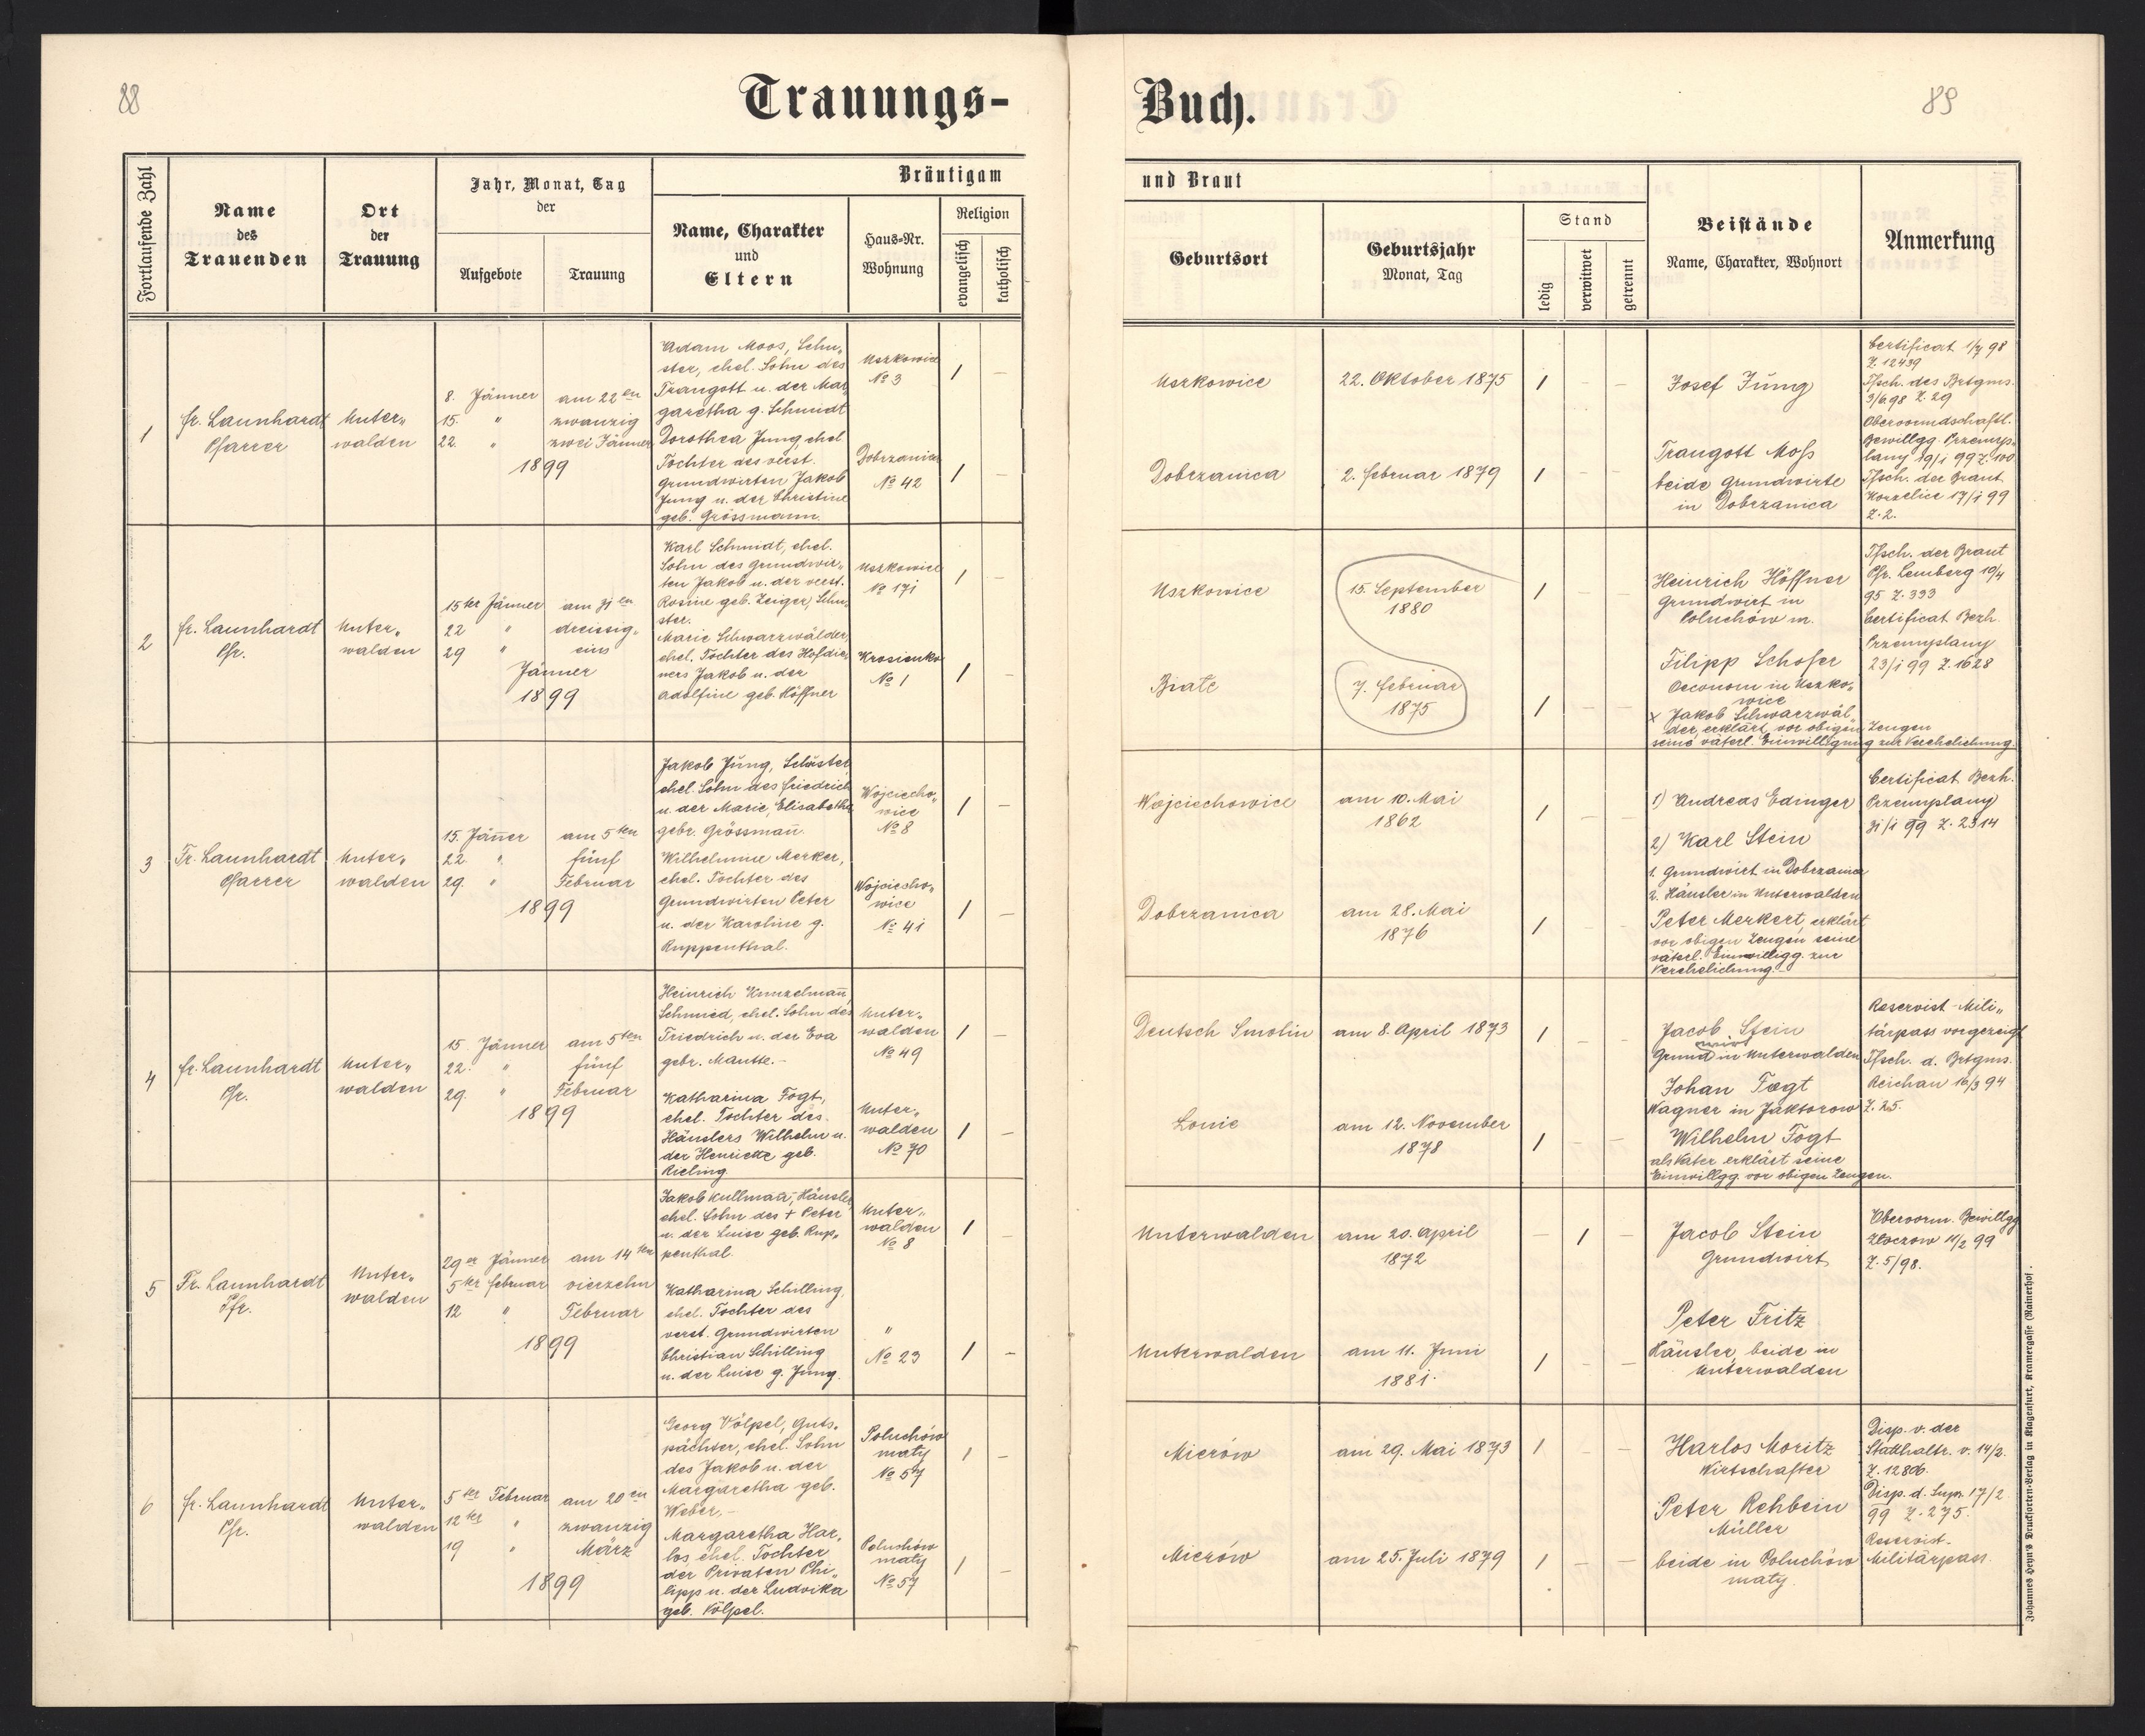 88
Trauungs-
Buch.
89
Fortlaufende Zahl
Name
des
Trauenden
Ort
der
Trauung
Jahr, Monat, Tag
der
Aufgebote
Trauung
Bräutigam
Name, Charakter
und
Eltern
Haus-Nr.
Wohnung
Religion
evangelisch
katholisch
und Braut
Geburtsort
Geburtsjahr
Monat, Tag
Stand
ledig
verwitwet
getrennt
Beistände
Name, Charakter, Wohnort
Anmerkung
1
fr. Launhardt
Pfarrer
Unter„
walden
8. Jänner
15. "
22. "
am 22en
zwanzig
zwei Jänner
1899
Adam Moos, Schu„
ster, ehel. Sohn des
Traugott u. der Mar
garetha g. Schmidt
Dorothea Jung, ehel
Tochter des verst.
Grundwirten Jakob
Jung u. der Christine
geb. Grössmann.
Uszkowice
№ 3
Dobrzanica
№ 42
1 –
1 –
Uszkowice
22. Oktober 1875
1 – –
Dobrzanica
2. Februar 1879
1 – –
Josef Jung
Traugott Moß
beide Grundwirte
in Dobrzanica
Certificat 1/7 98
Z. 12439
Tfsch. des Brtgms.
3/6 98 Z. 29
Obervormdschaftl.
Bewillgg. Przemys„
lany 19/1 99 Z. 100
Tfsch. der Braut
Korzelice 17/1 99
Z. 2.
2
fr. Launhardt
Pfr.
Unter„
walden
15ter Jänner
22 "
29 "
am 31en
dreissig„
eins
Jänner
1899
Karl Schmidt, ehel.
Sohn des Grundwir„
ten Jakob u. der verst.
Rosine geb. Zeiger, Schu„
ster.
Marie Schwarzwälder,
ehel. Tochter des Hofdie„
ners Jakob u. der
Adolfine geb. Höffner
Uszkowice
№ 171
Krosienko
№ 1
1 –
1 –
Uszkowice
15. September
1880
1 – –
Biate
7. Februar
1875
1 – –
Heinrich Höffner
Grundwirt in
Poluchów m.
Filipp Schofer
Oeconom in Uszko„
wice
x Jakob Schwarzwäl„
der erklärt vor obigen Zeugen
seine väterl. Einwilligung zur Verehelichung.
Tfsch. der Braut
Pfr. Lemberg 19/4
95 Z. 333
Certificat Bezh.
Przemyslany
23/1 99 Z. 1628
3
Fr. Launhardt
Pfarrer
Unter„
walden
15. Jäner
22. "
29. "
am 5ten
fünf
Februar
1899
Jakob Jung, Schuster,
ehel. Sohn des Friedrich
u. der Marie, Elisabetha
gebr. Grössmañ.
Wilhelmine Merker,
ehel. Tochter des
Grundwirten Peter
u. der Karoline g.
Ruppenthal.
Wojciecho„
wice
№ 8
Wojciecho„
wice
№ 41
1 –
1 –
Wojciechowice
am 10. Mai
1862
1 – –
Dobrzanica
am 28. Mai
1876
1 – –
1) Andreas Edinger
2) Karl Stein
1. Grundwirt in Dobrzanica
2. Häusler in Unterwalden
Peter Merkert, erklärt
vor obigen Zeugen seine
väterl. Einwilligg. zur
Verehelichung.
Certificat Bezh.
Przemyslany
31/1 99 Z. 2314
4
fr. Launhardt
Pfr.
Unter„
walden
15 Jänner
22. "
29. "
am 5ten
fünf
Februar
1899
Heinrich Kunzelmañ,
Schmied, ehel. Sohn des
Friedrich u. der Eva
gebr. Mautte. –
Katharina Fogt,
ehel. Tochter des
Häuslers Wilhelm u.
der Henriette geb.
Rieling
Unter„
walden
№ 49
Unter„
walden
№ 70
1 –
1 –
Deutsch Smolin
am 8. April 1873
1 – –
Lonie
am 12. November
1878
1 – –
Jacob Stein
Grundwirt in Unterwalden
Johan Fogt
Wagner in Jaktorow
Wilhelm Fogt
als Vater erklärt seine
Einwillgg. vor obigen Zeugen.
Reservist-Mili„
tärpass vorgezeigt
Tfsch. d. Brtgms.
Reichau 16/3 94
Z. 25.
5
Fr. Launhardt
Pfr.
Unter„
walden
29er Jänner
5ter Februar
12 "
am 14ten
vierzehn
Februar
1899
Jakob Kullmañ, Häusler,
ehel. Sohn des † Peter
u. der Luise geb. Rup„
penthal.
Katharina Schilling,
ehel. Tochter des
verst. Grundwirten
Christian Schilling
u. der Luise g. Jung.
Unter„
walden
№ 8
"
№ 23
1 –
1 –
Unterwalden
am 20. April
1872
– 1 –
Unterwalden
am 11. Juni
1881.
1 – –
Jacob Stein
Grundwirt
Peter Fritz
Häusler, beide in
Unterwalden
Obervorm. Bewillgg
Zloczow 10/2 99
Z. 5/98.
6
fr. Launhardt
Pfr.
Unter„
walden
5ter Februar
12ter "
19 "
am 20en
zwanzig
März
1899
Georg Völpel, Guts„
pächter, ehel. Sohn
des Jakob u. der
Margaretha geb.
Weber. –
Margaretha Har„
los, ehel. Tochter
der Privaten Phi„
lipp u. der Ludvika
geb. Völpel.
Poluchów
maty
№ 57
Poluchów
maty
№ 57
1 –
1 –
Mierów
am 29. Mai 1873
1 – –
Mierów
am 25. Juli 1879
1 – –
Harlos Moritz
Wirtschafter
Peter Rehbein
Müller
beide in Poluchów
maty
Disp. v. der
Statthaltr. v. 14/2.
Z. 12806.
Disp. d. Sup. 17/2
99 Z. 275.
Reservist-
Militärpass.
Johannes Heyn's Drucksorten-Verlag in Klagenfurt, Kramergasse (Rainerhof.